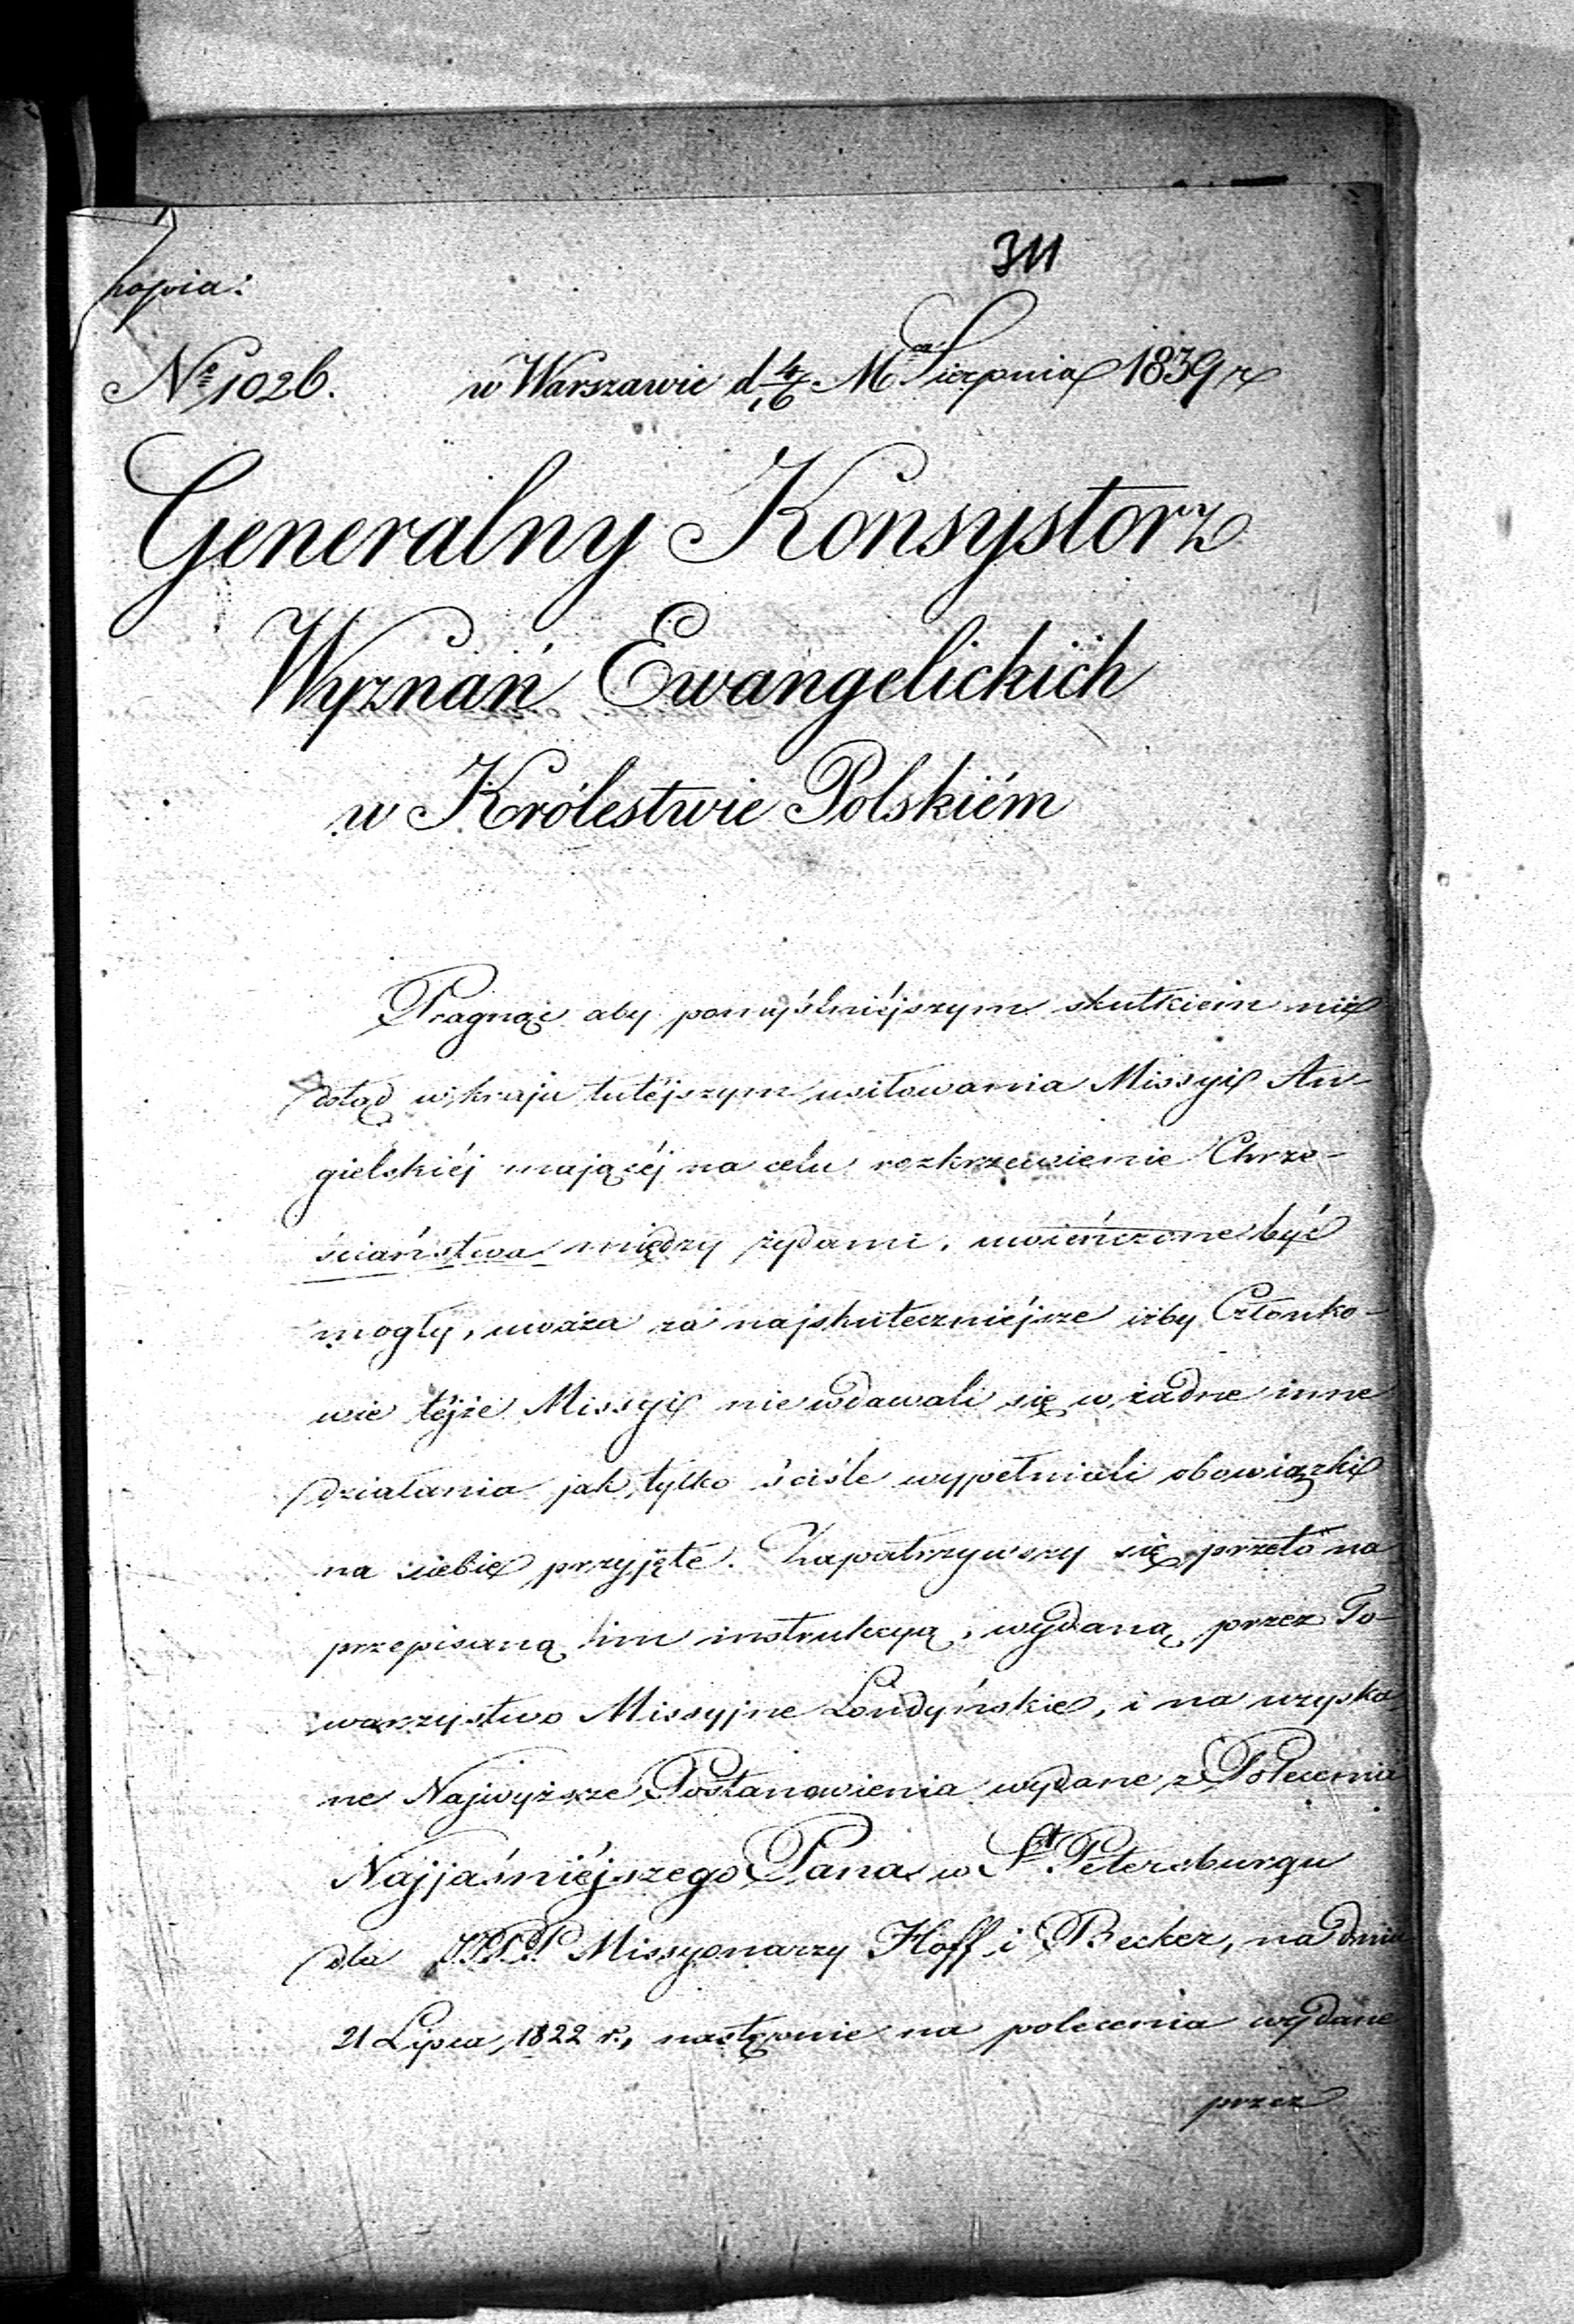 311
kopia:
Nº 1026. w Warszawie d 4/16 Mca Sierpnia 1839 r
Generalny Konsystorz
Wyznań Ewangelickich
w Królestwie Polskiém
Pragnąc aby pomyślniéjszym skutkiem niż
dotąd w kraju tutéjszym usiłowania Missyi An-
gielskiéj mającéj na celu rozkrzewienie Chrze-
ściaństwa między żydami, uwieńczone być
mogły, uważa za najskuteczniéjsze iżby Członko-
wie téjże Missyi nie wdawali się w żadne inne
działania jak tylko ściśle wypełniali obowiązki
na siebie przyjęte. Zapatrzywszy się przeto na
przepisaną im instrukcyą, wydaną przez To-
warzystwo Missyjne Londyńskie, i na uzyska
ne Najwyższe Postanowienia wydane z Polecenia
Najjaśniéjszego Pana w St Petersburgu
dla Missyonarzy Hoff i Becker, na dniu
21 Lipca 1822 r., następnie na polecenia wydane
przez